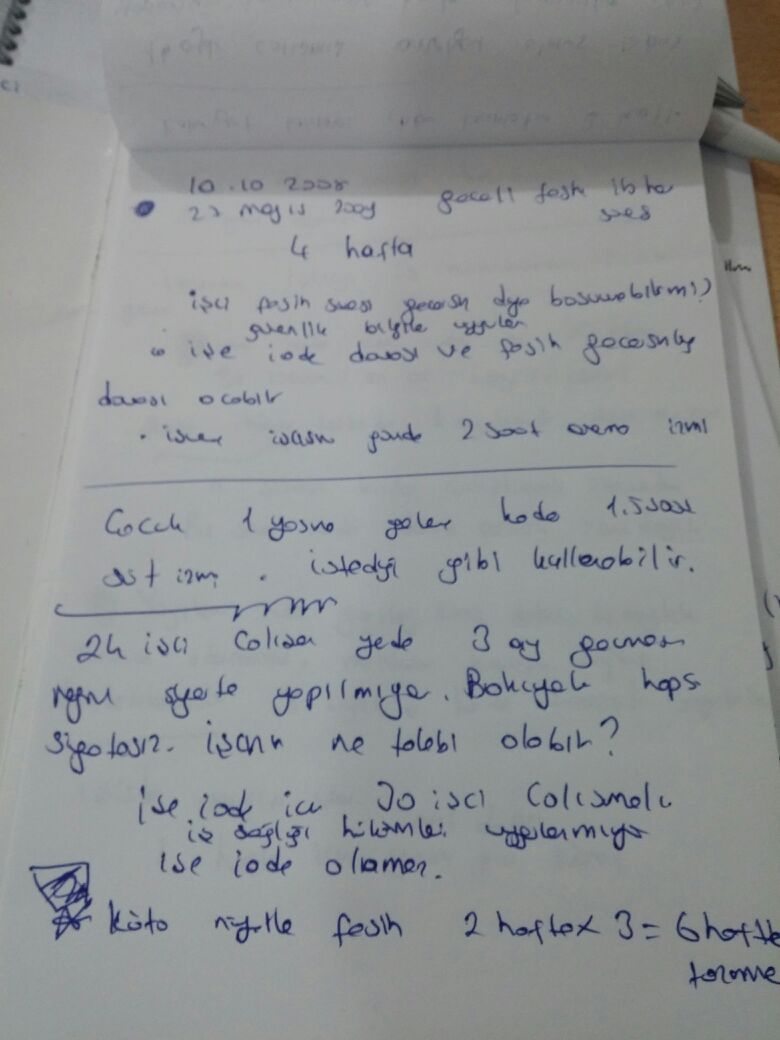 10.10 2008
23 mayıs 2009 geçerli fesih ihbar
süresi
4 hafta
işçi fesih süresi geçersin diye başvurabilir mi?
güvenlik uygulan
işe iade davası ve fesih
davası açabilir
işveren günde 2 saat arama izni
Çocuk 1 yaşına gelene kadar 1.5 saat
süt izni. istediği gibi kullanabilir.
24 işçi Çalışan yerde 3 ay geçmesine
rağmen yapılmıyor. Bakıyorki hepsi
sigortasız. işçinin ne talebi olabilir?
İşe iade için 30 işçi Çalışmalı
iş sağlığı hükümleri uygulanmıyor
işe iade olamaz.
Kötü niyetle fesih 2 hafta x 3 = 6 hafta